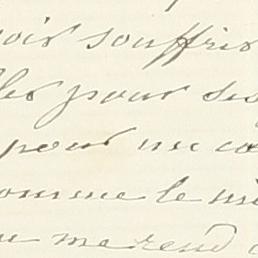 voir souffrir
les pour ses
pour un co
comme le mi
me rend